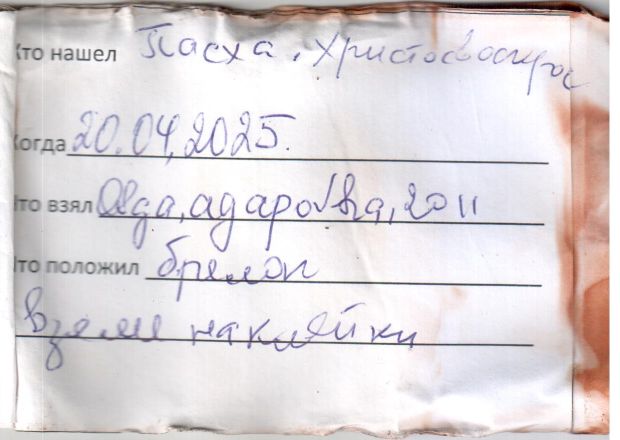 Кто нашел Пасха, Христос воскрес
Когда 20.04.2025.
Что взял Olga,agapovha, 2011
Что положил брелок
взяли наклейки